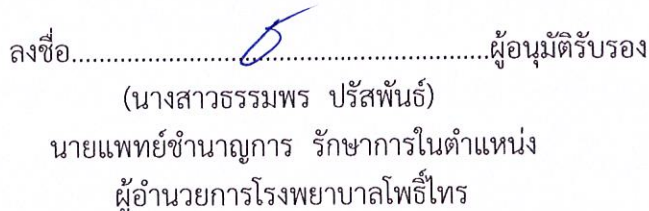 ลงชื่อ............................................................ผู้อนุมัติรับรอง
(นางสาวธรรมพร ปรัสพันธ์)
นายแพทย์ชำนาญการ รักษาการในตำแหน่ง
ผู้อำนวยการโรงพยาบาลโพธิ์ไทร